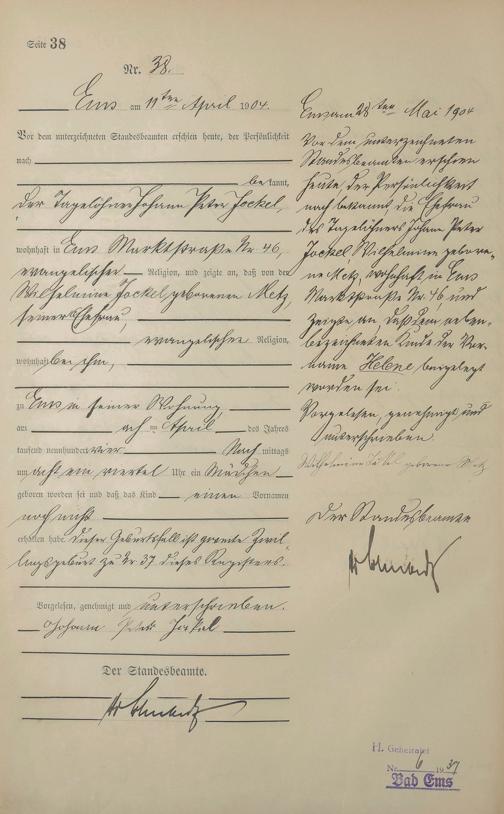 Seite 38
Nr. 38.
Ems am 11ten April 1904.
Vor dem unterzeichneten Standesbeamten erschien heute, der Persönlichkeit
nach
bekannt,
der Tagelöhner Johann Peter Jockel,
wohnhaft in Ems Marktstraße Nr. 46,
evangelischer Religion, und zeigte an, daß von der
Wilhelmine Jockel geborenen Metz,
seiner Ehefrau
evangelischer Religion,
wohnhaft bei ihm,
zu Ems in seiner Wohnung,
am April des Jahres
tausend neunhundert vier Nachmittags
um acht ein viertel Uhr ein Mädchen
geboren worden sei und daß das Kind einen Vornamen
noch nicht
erhalten habe. Dieser Geburtsfall ist zweite Zwil-
lingsgeburt zu Nr. 37 dieses Registers.
Vorgelesen, genehmigt und unterschrieben.
Johann Peter Jockel
Der Standesbeamte.
Ems am 28ten Mai 1904
Vor dem unterzeichneten
Standesbeamten erschien
heute, der Persönlichkeit
nach bekannt, die Ehefrau
des Tagelöhners Johann Peter
Jockel Wilhelmine gebore-
ne Metz, wohnhaft in Ems
Marktstraße Nr. 46, und
zeigte an, daß dem neben-
bezeichneten Kinde der Vor-
name Helene beigelegt
worden sei.
Vorgelesen, genehmigt und
unterschrieben.
Wilhelmine Jockel geborene Metz
Der Standesbeamte
H. Geheiratet
Nr. 6 1937
Bad Ems